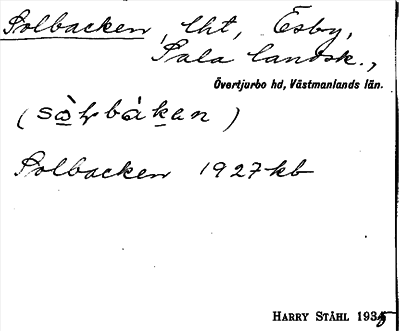 Solbacken, lht, Esby,
Sala landsk.,
Övertjurbo hd, Västmanlands län.
(sòlbàkan)
Solbacken 1927 kb
HARRY STÅHL 1935